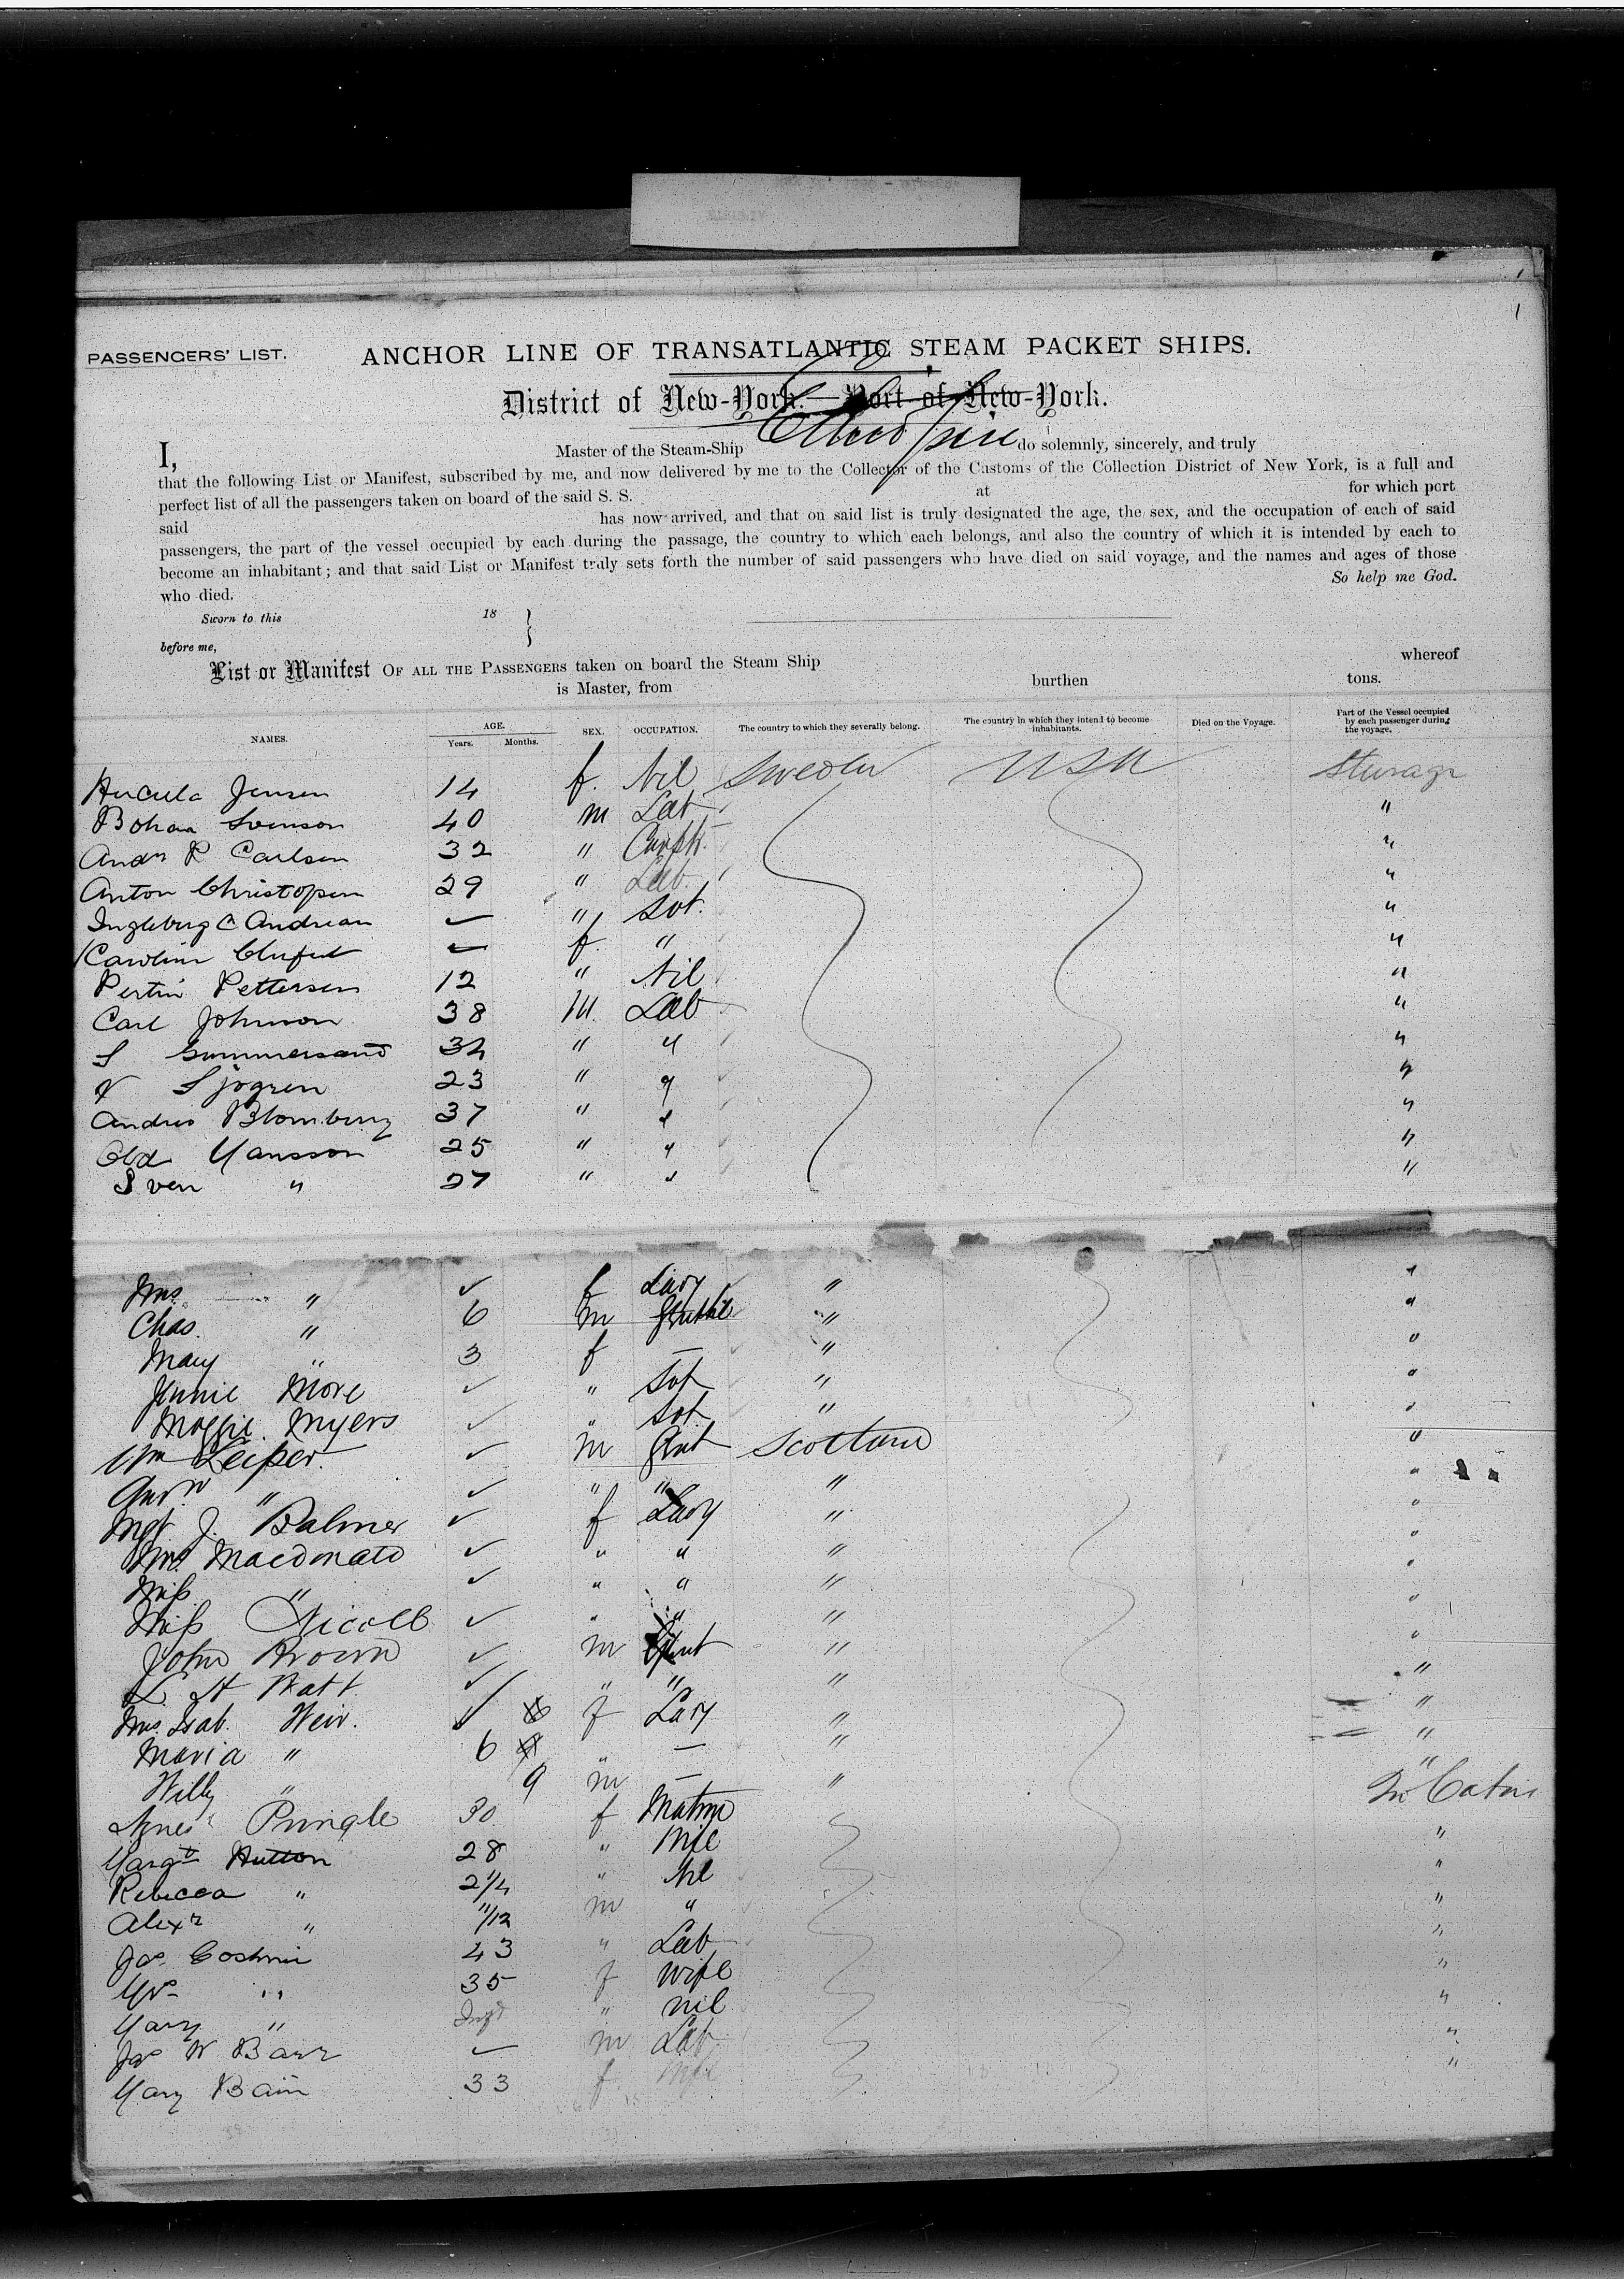 PASSENGERS' LIST.
ANCHOR LINE OF TRANSATLANTIC STEAM PACKET SHIPS.
District of New-York.—Port of New-York.
I, Master of the Steam-Ship Ethiopia do solemnly, sincerely, and truly
that the following List or Manifest, subscribed by me, and now delivered by me to the Collector of the Customs of the Collection District of New York, is a full and
perfect list of all the passengers taken on board of the said S. S. at for which port
said has now arrived, and that on said list is truly designated the age, the sex, and the occupation of each of said
passengers, the part of the vessel occupied by each during the passage, the country to which each belongs, and also the country of which it is intended by each to
become an inhabitant; and that said List or Manifest truly sets forth the number of said passengers who have died on said voyage, and the names and ages of those
who died. So help me God.
Sworn to this 18
before me,
List or Manifest OF ALL THE PASSENGERS taken on board the Steam Ship whereof
is Master, from burthen tons.
NAMES. AGE. Years. Months. SEX. OCCUPATION. The country to which they severally belong. The country in which they intend to become inhabitants. Died on the Voyage. Part of the Vessel occupied by each passenger during the voyage.
Jensen 14 f. Nil Sweden USA Sterage
Svenson 40 m Lab "
Andw P Carlsen 32 " Carptr. "
Anton Christopsen 29 " Lab. "
Ingleburg C Andrean ✓ " Svt. "
Carolin ✓ f. " "
Pettersen 12 " Nil "
Carl Johnson 38 M. Lab "
S Gummersand 34 " " "
Sjogren 23 " " "
Andres Blomberg 37 " " "
Mansson 25 " " "
Sven " 27 " " "
Mrs. " ✓ f Lady " "
Chas. " 6 m " "
Mary " 3 f — " "
Jennie More ✓ " Svt " "
Maggie Myers ✓ " Svt. " "
Wm Leiper. ✓ m Gent Scotland "
Andw " ✓ " " " "
Mgt. J. Balmer ✓ f Lady " "
Mrs. Macdonald ✓ " " " "
Miss " ✓ " " " "
Miss Nicoll ✓ " " " "
John Brown ✓ m Gent " "
L. H Watt ✓ " " " "
Mrs. Isab. Weir. ✓ f Lady " "
Maria " 6 " — " "
Willy " 9 m — " "
Agnes Pringle 30 f Matron In Cabin
Margt Hutton 28 " Wife "
Rebecca " 2 1/4 " Nil "
Alexr " 11/12 m " "
Jas. 43 " Lab "
Mrs " 35 f Wife "
Mary " Inft " nil "
Jas W Barr ✓ m Lab "
Mary Bain 33 f Wife "